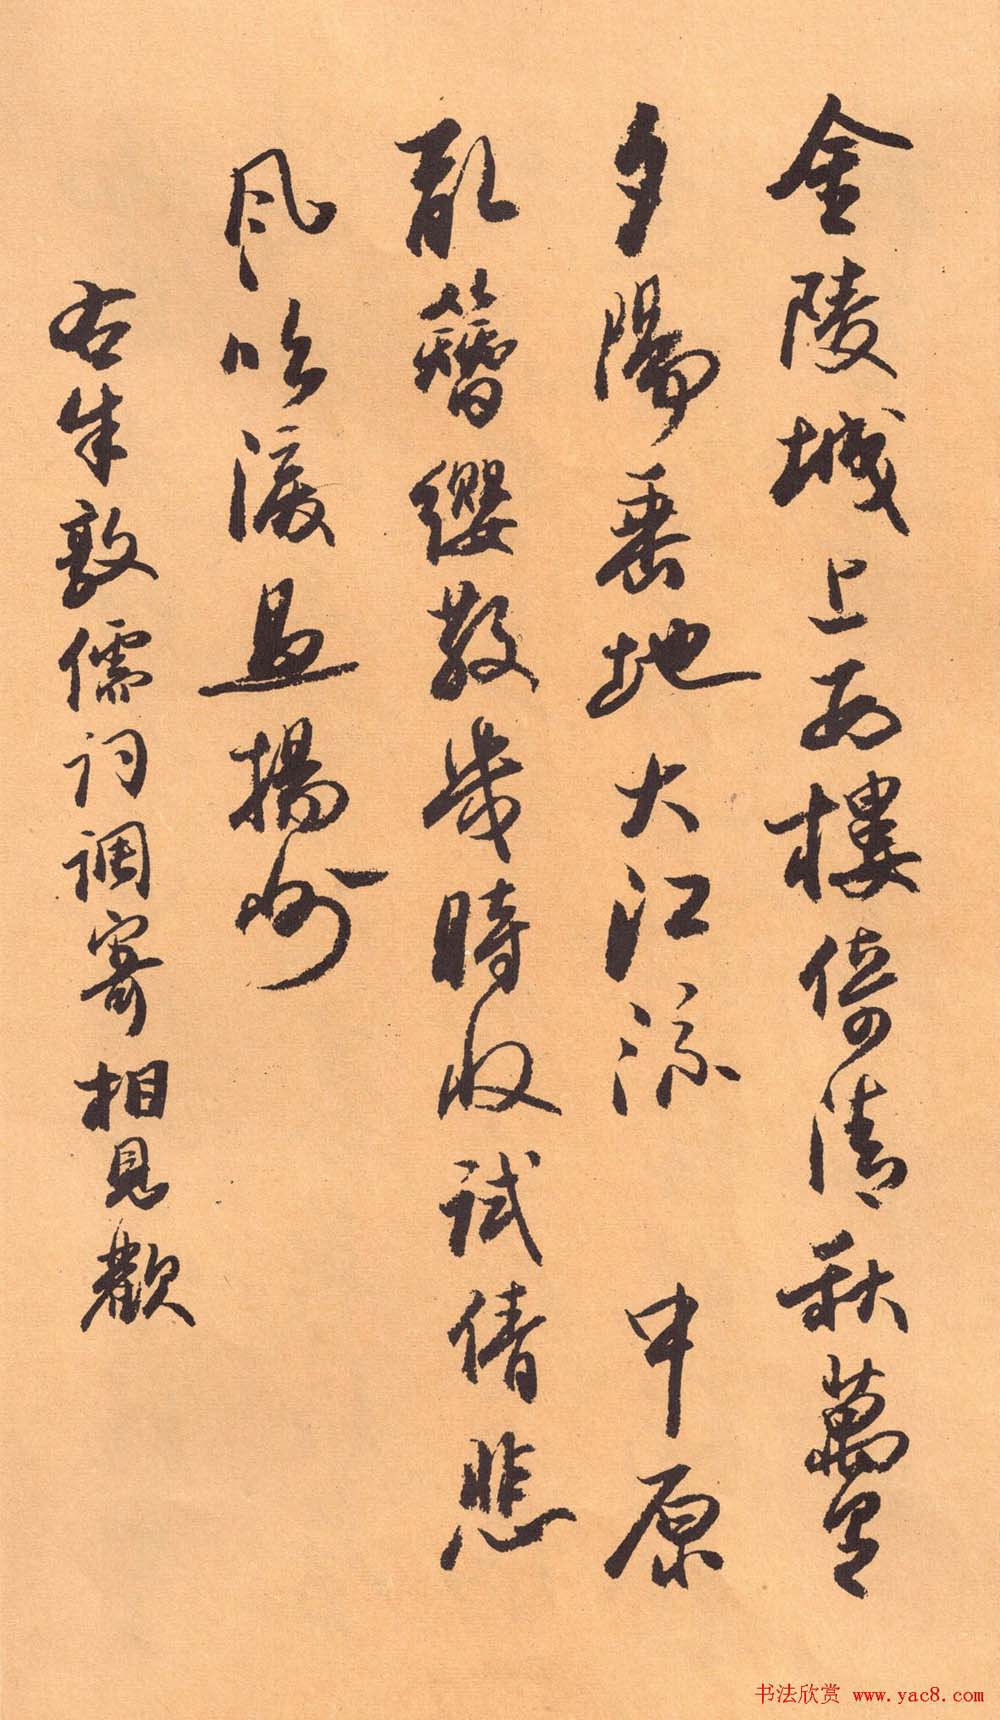 金陵城上西樓倚清秋萬里
夕陽垂地大江流 中原
亂簪纓散幾時收試倩悲
風吹淚過揚州
右朱敦儒詞調寄相見歡
书法欣赏 www.yac8.com